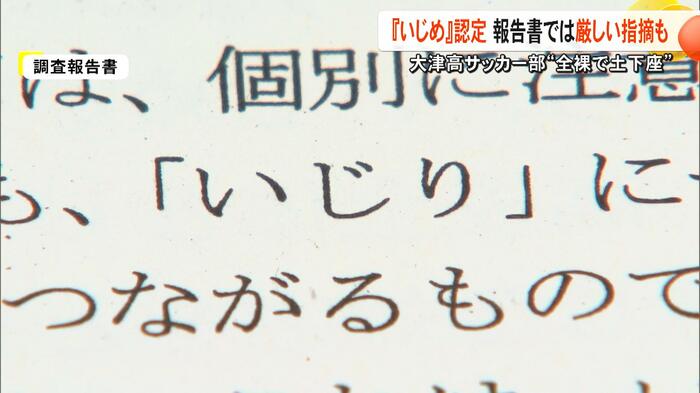 『いじめ』認定 報告書では厳しい指摘も
大津高サッカー部“全裸で土下座”
調査報告書
は、個別に注意
も、「いじり」に
つながるもので